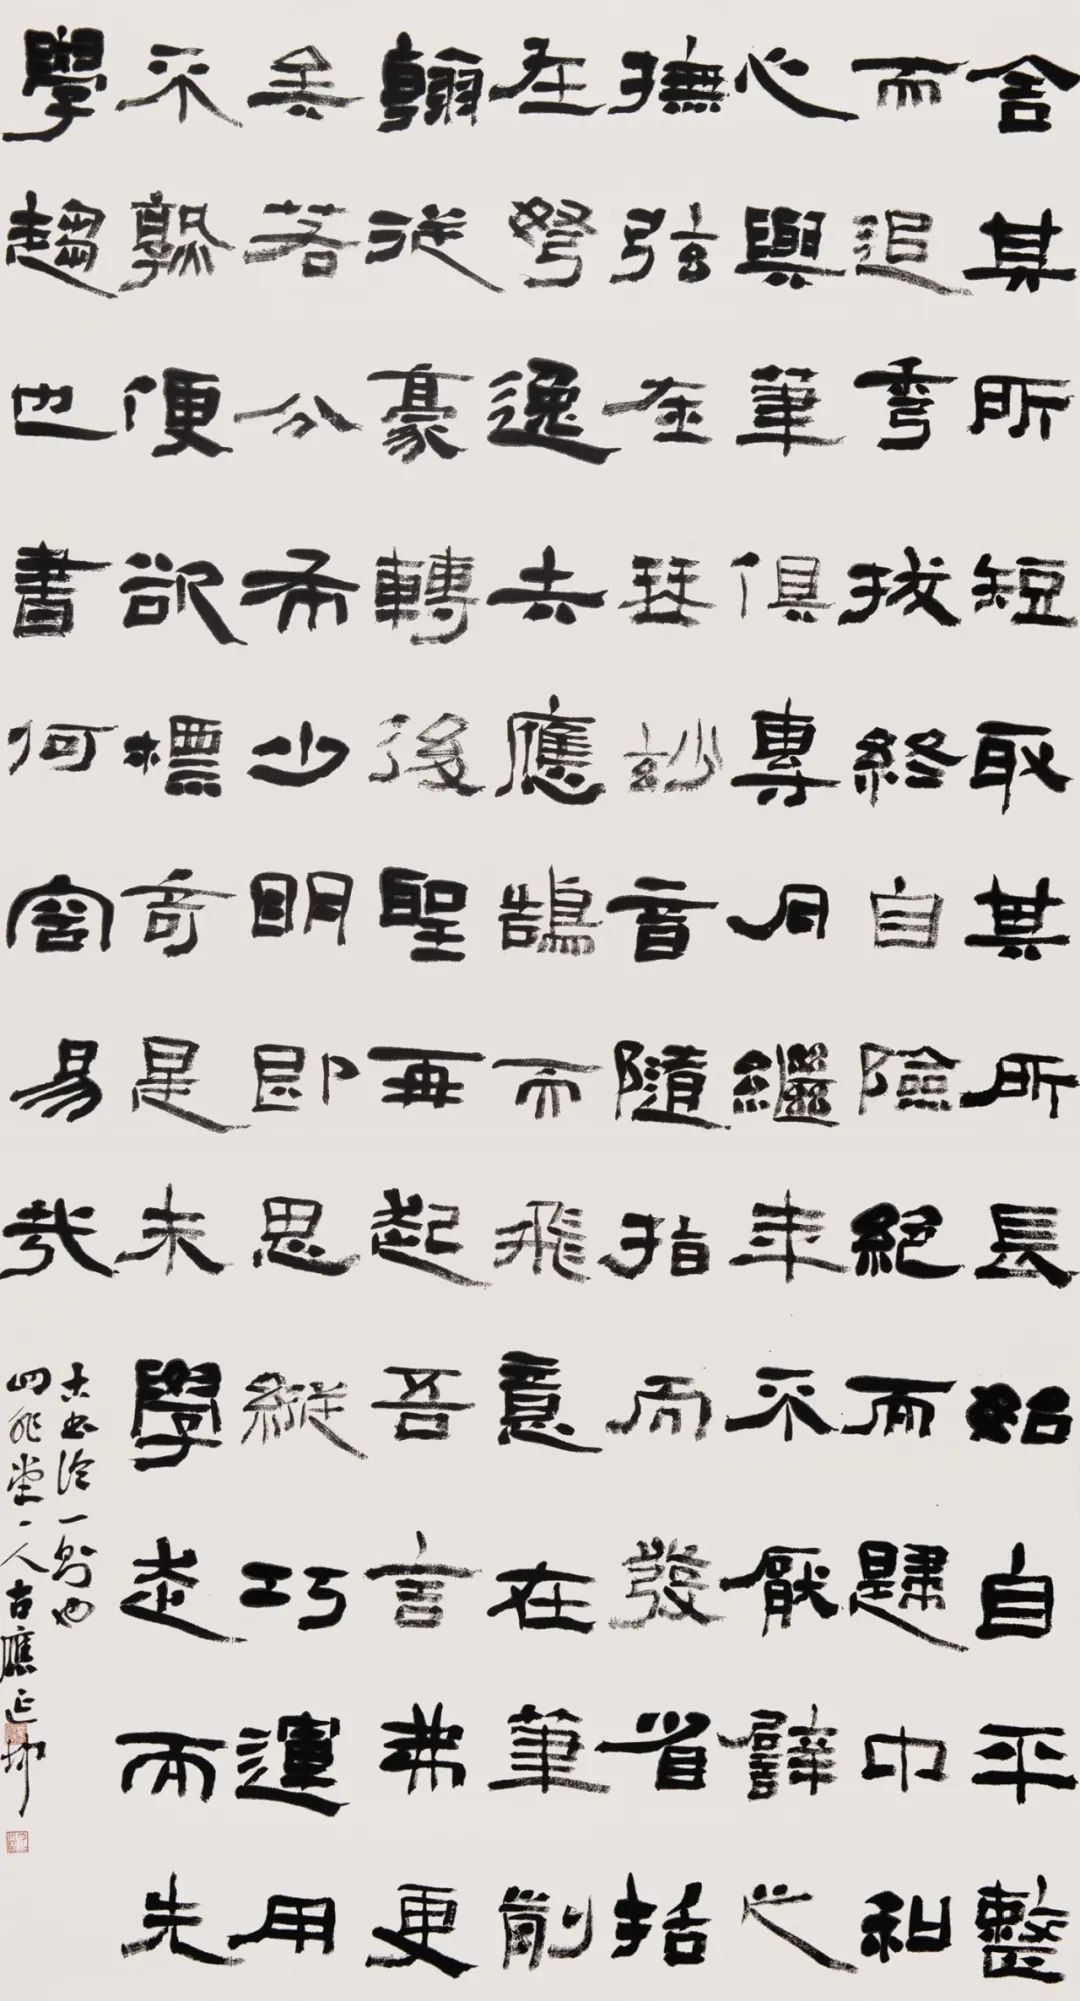 舍其所短取其所長始自平整
而追秀拔終自險絕而歸中和
心與筆俱專月繼年不厭譬之
撫弦在琴玅音隨指而發省括
在弩逸去應鵠而飛意在筆前
翰從豪轉後聖再起吾言弗更
矣若分布少明即思縱巧運用
不孰便欲標奇是未學走而先
學趨也書何容易哉
古書論一則也
堂人古應延坤